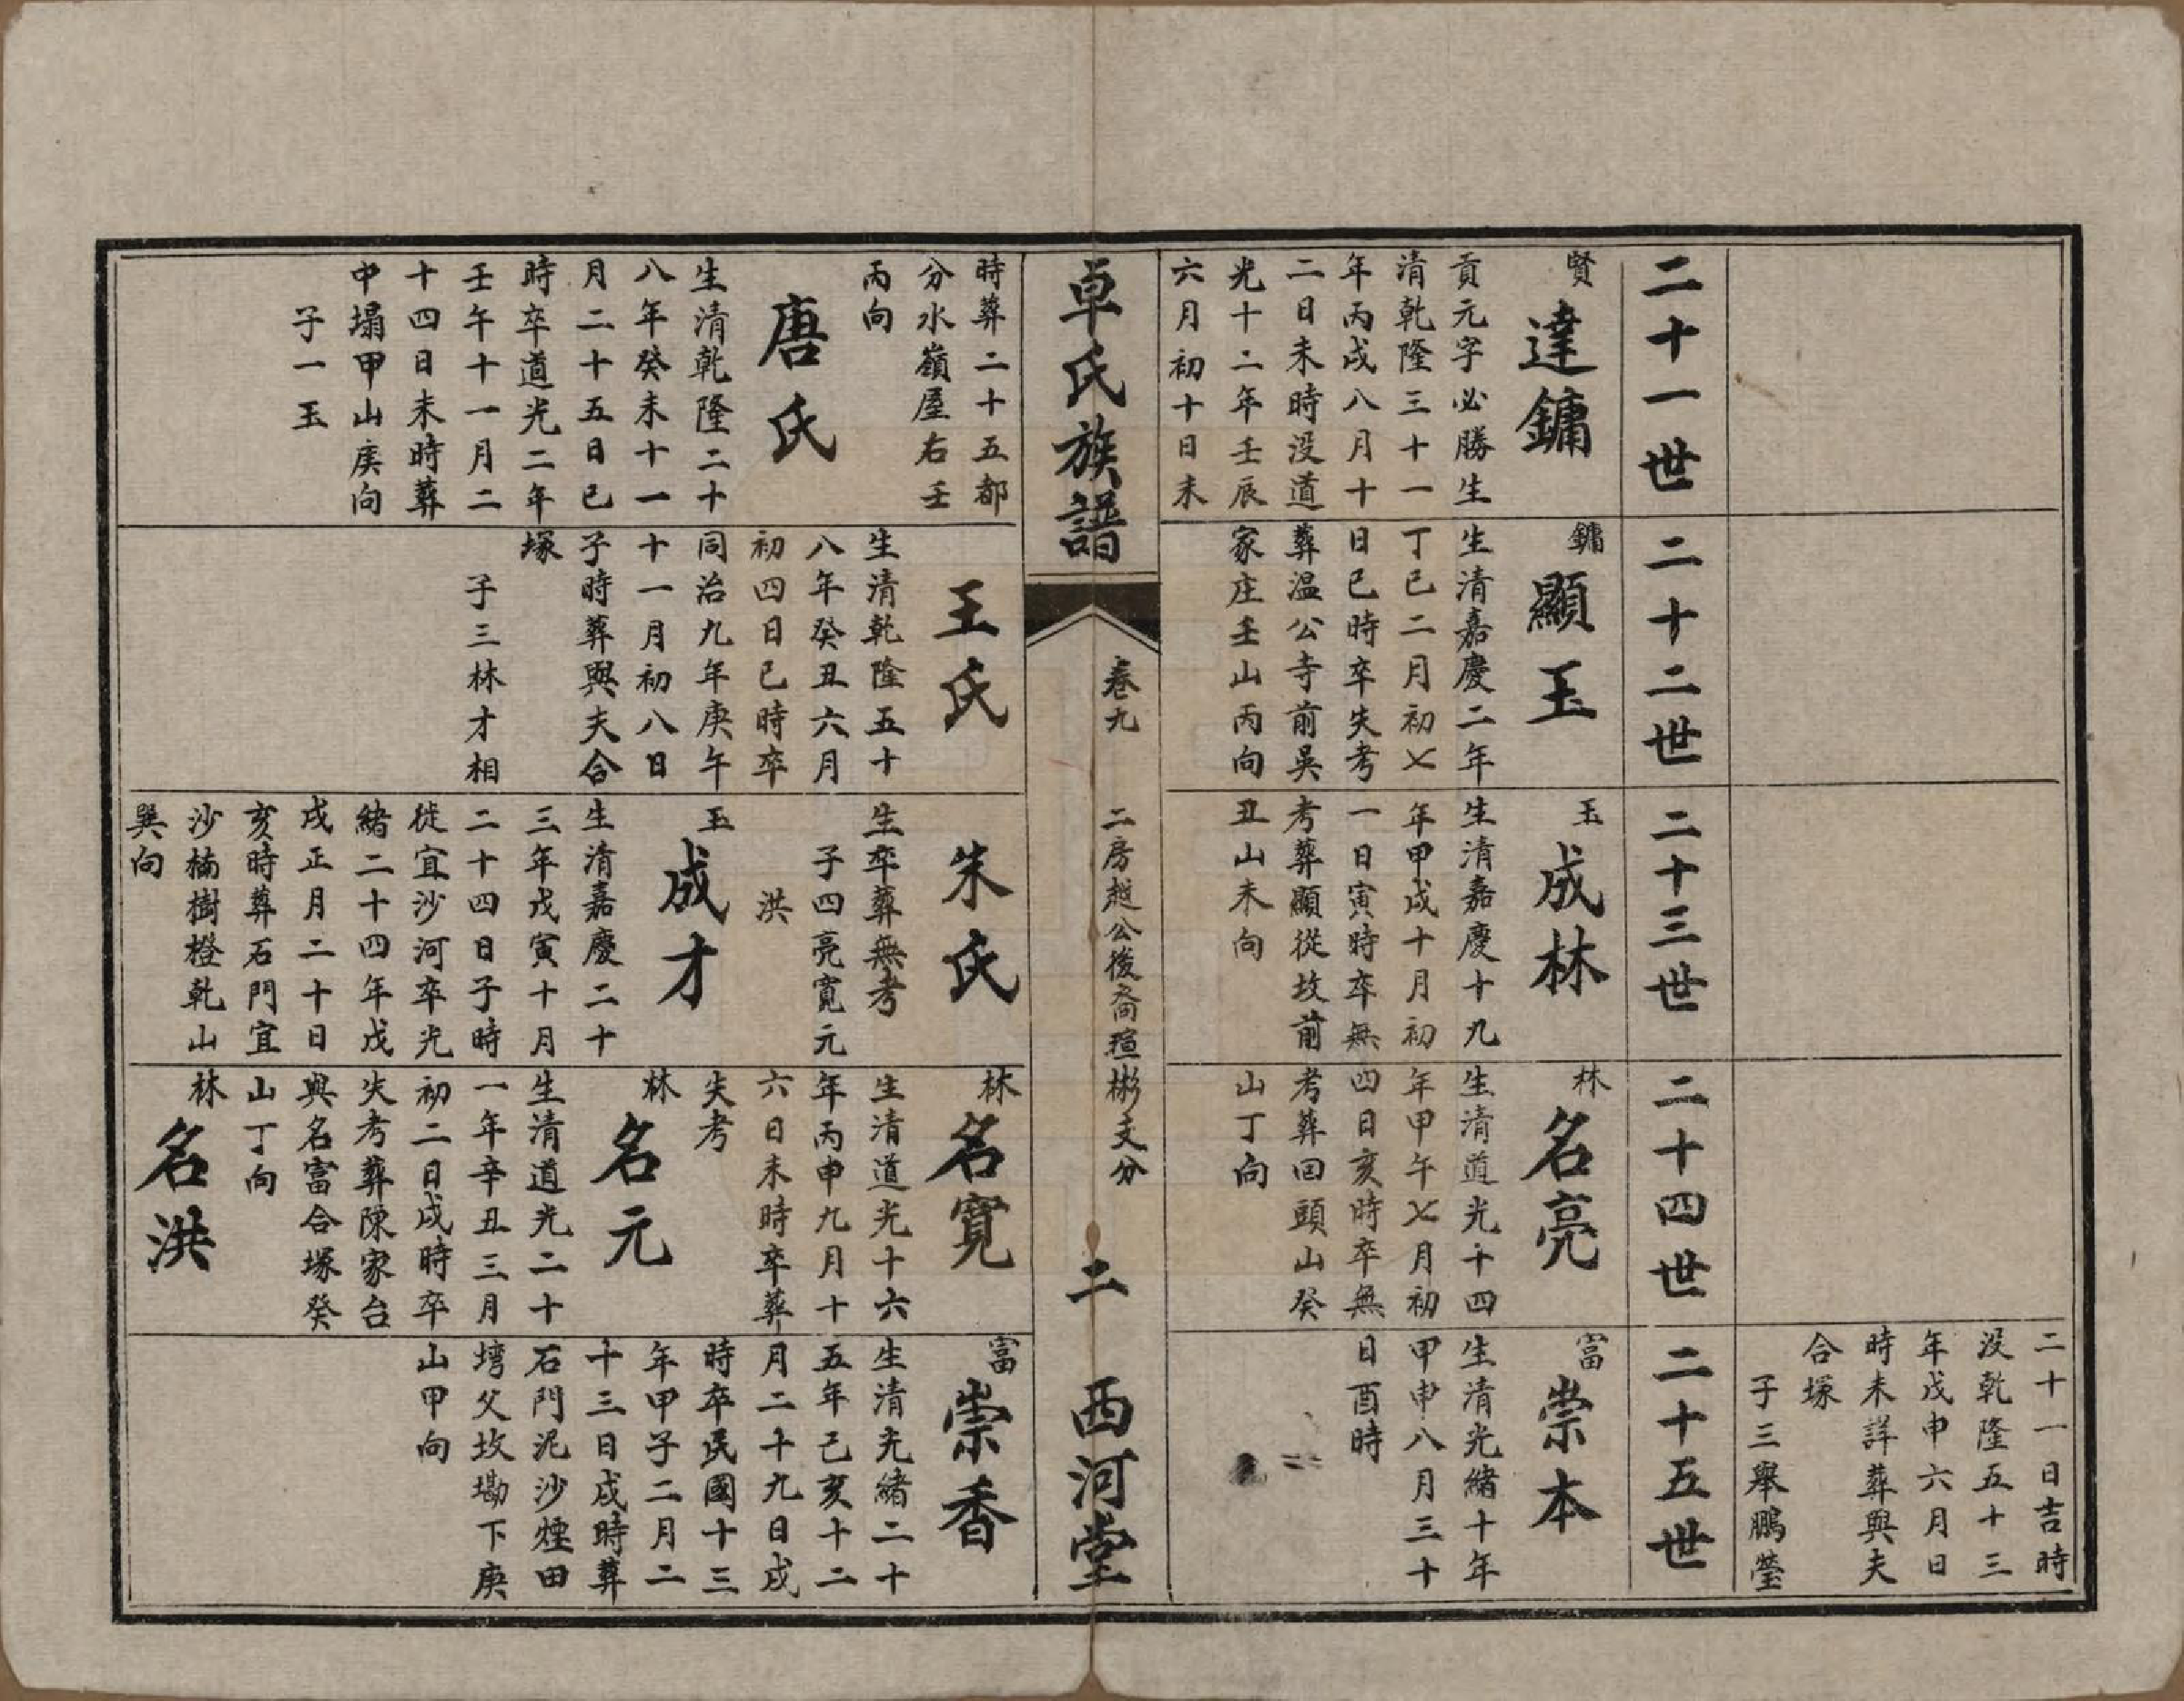 二十一日吉時
没乾隆五十三
年戊申六月日
時未詳葬與夫
合塚
子三舉鵬瑩
二十一世
賢
達鏞
貢元字必勝生
清乾隆三十一
年丙戌八月十
二日未時没道
光十二年壬辰
六月初十日未
二十二世
鏞
顯玉
生清嘉慶二年
丁巳二月初七
日巳時卒失考
葬温公寺前吳
家庄壬山丙向
二十三世
玉
成林
生清嘉慶十九
年甲戌十月初
一日寅時卒無
考葬顯從坟前
丑山未向
二十四世
林
名亮
生清道光十四
年甲午七月初
四日亥時卒無
考葬回頭山癸
山丁向
二十五世
富
崇本
生清光緒十年
甲申八月三十
日酉時
卓氏族譜
卷九
二房越公後裔瑄彬支分
二
西河堂
時葬二十五都
分水嶺屋右壬
丙向
唐氏
生清乾隆二十
八年癸未十一
月二十五日巳
時卒道光二年
壬午十一月二
十四日未時葬
中塌甲山庚向
子一玉
王氏
生清乾隆五十
八年癸丑六月
初四日巳時卒
同治九年庚午
十一月初八日
子時葬與夫合
塚
子三林才相
朱氏
生卒葬無考
子四亮寬元
洪
玉
成才
生清嘉慶二十
三年戊寅十月
二十四日子時
徙宜沙河卒光
緒二十四年戊
戌正月二十日
亥時葬石門宜
沙楠樹橙乾山
巽向
林
名寬
生清道光十六
年丙申九月十
六日未時卒葬
失考
林
名元
生清道光二十
一年辛丑三月
初二日戌時卒
失考葬陳家台
與名富合塚癸
山丁向
林
名洪
富
崇香
生清光緒二十
五年己亥十二
月二十九日戌
時卒民國十三
年甲子二月二
十三日戌時葬
石門泥沙烟田
塆父坟墈下庚
山甲向